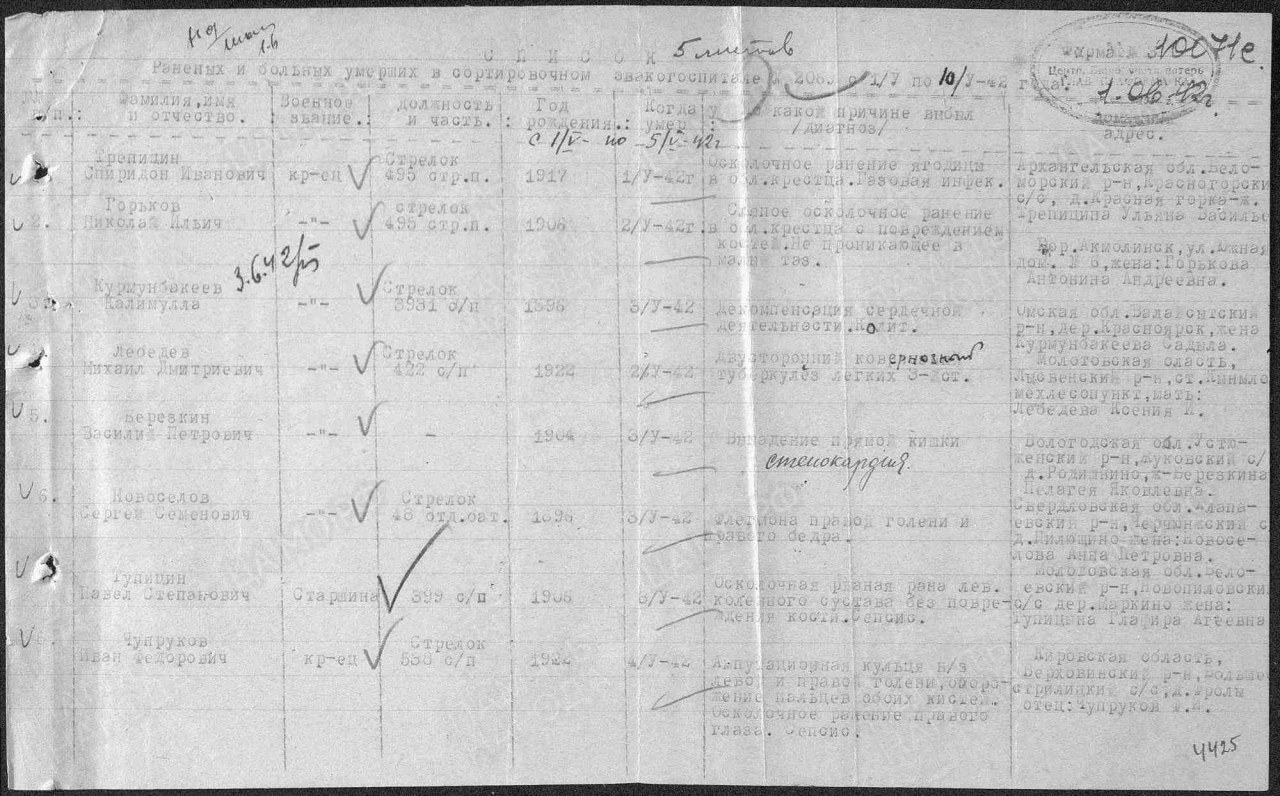 С П И С О К 5 листов
Раненых и больных умерших в сортировочном эвакогоспитале 2069 с 1/У по 10/У-42 года.
10071с
1.06.42г
Фамилия, имя и отчество. : Военное звание. : должность и часть. : Год рождения. : Когда умер : о какой причине выбыл /Диагноз/ адрес.
с 1/V- по 5/V-42г
Трепицин Стрелок Осколочное ранение ягодицы Архангельская обл.Бело-
Спиридон Иванович кр-ец 495 стр.п. 1917 1/У-42г в обл.крестца.Газовая инфек. морский р-н,Красногорски
с/с, д.Красная горка-ж.
Горьков стрелок Слепое осколочное ранение Трепицина Ульяна Василье
2. Николай Ильич -"- 495 стр.п. 1908 2/У-42г в обл.крестца с повреждением
костей.Не проникающее в гор.Акмолинск,ул.Южная
малый таз. дом. № 6,жена:Горькова
Антонина Андреевна.
3.6.42г
Курмунбакеев Стрелок
Калимулла -"- 3931 с/п 1896 3/У-42 Декомпенсация сердечной Омская обл.
деятельности.Колит. р-н,дер.Красноярск,жена
Курмунбакеева Садыла.
Лебедев Стрелок Двусторонний кавернозный Молотовская область,
Михаил Дмитриевич -"- 422 с/п 1922 2/У-42 туберкулез легких 3-йст. Лысвенский р-н,ст.
мехлесопункт,мать:
Лебедева Ксения И.
5. Березкин
Василий Петрович -"- - 1904 3/У-42 Выпадение прямой кишки Вологодская обл.Устю-
стенокардия. женский р-н,Жуковский с/
д.Родишкино,ж-Березкина
Пелагея Яковлевна.
6. Новоселов Стрелок Свердловская обл.Алапа-
Сергей Семенович -"- 48 отд.бат. 1896 3/У-42 Флегмона правой голени и евский р-н,
правого бедра. жена:Новосе-
лова Анна Петровна.
Тупицин Осколочная рваная рана лев. Молотовская обл.
Павел Степанович Старшина 399 с/п 1908 3/У-42 коленного сустава без повре- евский р-н,Новопиловский
ждения кости.Сепсис. с/с дер.Маркино жена:
Тупицына Глафира Агеевна
Чупруков Стрелок
Иван Федорович кр-ец 538 с/п 1922 4/У-42 Ампутационная культя н/з Кировская область,
левой и правой голени, Верховинский р-н,Больше
жение пальцев обоих кистей. стрилицкий с/с,д.Фролы
Осколочное ранение правого отец:Чупруков Ф.И.
глаза. Сепсис.
4425